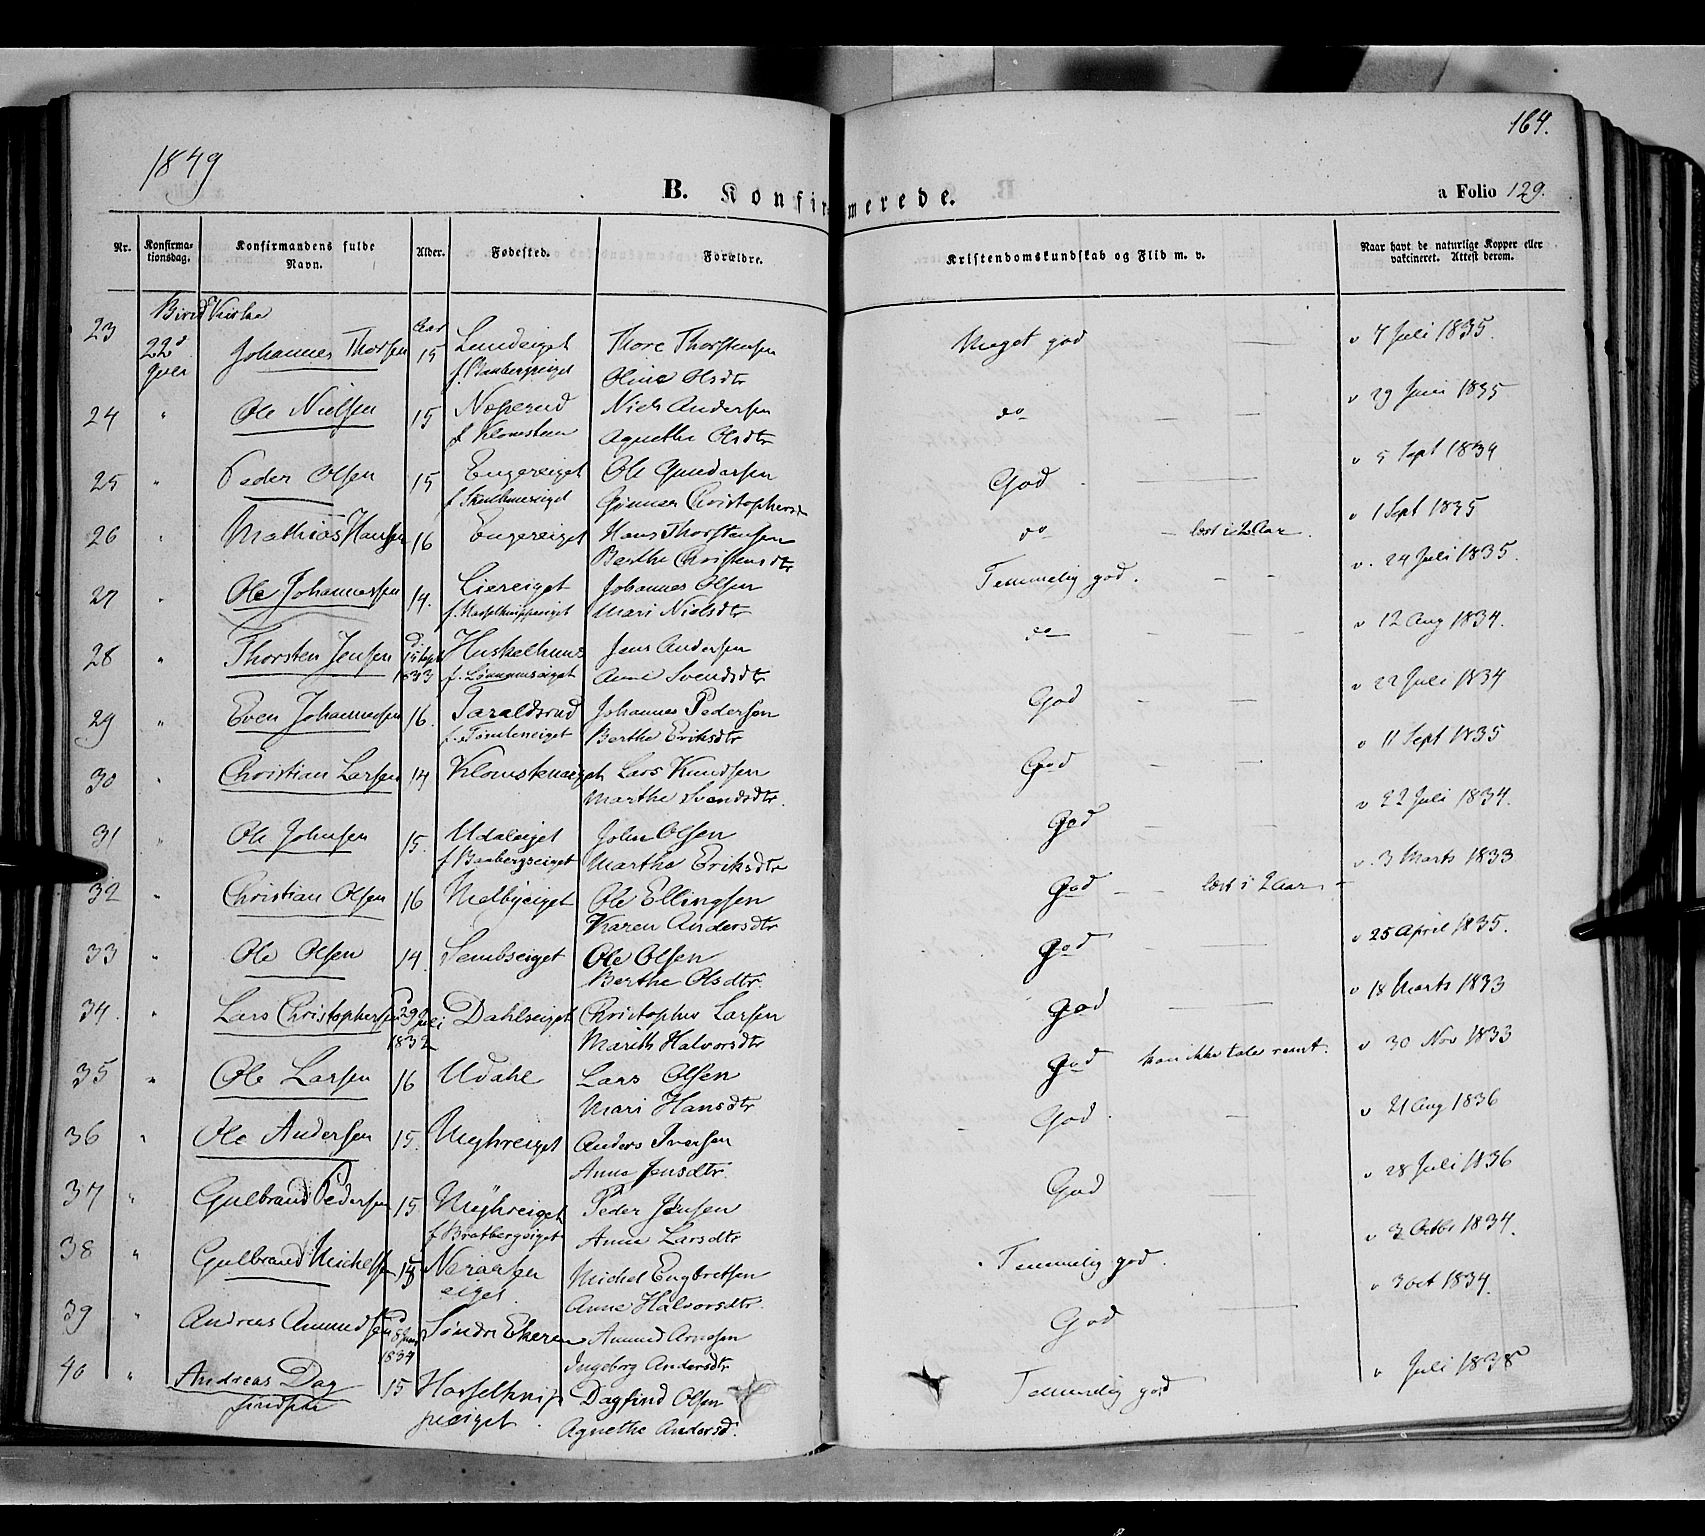 164.
1849
B. Konfirmerede.
a Folio 129.
Nr. Konfirmationsdag. Konfirmandens fulde Navn. Alder. Fødested. Forældre. Kristendomskundskab og Flid m. v. Naar havt de naturlige Kopper eller vakcineret. Attest derom.
Birid Kirke
23 22d Johannes Thorsen Aar 15 Lundeiget Thore Thorstensen Meget god — — v 7 Juli 1835.
f. Baabergseiget Oline Olsdtr
24 " Ole Nielsen 15 Niels Andersen do — — v 29 Juni 1835
f Klomsteen Agnethe Olsdtr
25 " Peder Olsen 15 Engereiget Ole Gundersen God — v 5 Sept 1834
Christophersd
26 " Mathias Hansen 16 Engereiget Hans Thorstensen do — læst i 2 Aar. v 1 Sept 1835
Berthe Christensdtr
27 " Ole Johannessen 14. Liereiget Johannes Olsen Temmelig god. — — v. 24 Juli 1835.
Mari Nielsdtr
28 " Thorsten Jensen d 14 Sept 1833 Huskelhuus Jens Andersen do — — — v 12 Aug 1834.
Anne Svendsdtr
29 " Even Johannessen 16. Taraldsrud Johannes Pedersen God — — v 22 Juli 1834
f. Tømteneiget Berthe Eriksdtr
30 " Christian Larsen 14 Klomsteneiget Lars Knudsen God — — v 11 Sept 1835
Marthe Svendsdtr.
31 " Ole Johnsen 15. Udaleiget John Olsen God — — v 22 Juli 1834.
f Baabergseiget Marthe Eriksdtr
32 " Christian Olsen 16 Melbyeiget Ole Ellingsen God — — læst i 2 Aar — v. 3 Marts 1833
Karen Andersdtr
33 " Ole Olsen 14. Sembseiget Ole Olsen God — — v 25 April 1835.
Berthe Olsdtr.
34. " Lars Christophersen d 29 Juli 1832 Dahlseiget Christopher Larsen God — v 18 Marts 1833
Marith Halvorsdtr
35 " Ole Larsen 16 Udahl Lars Olsen God kan ikke tale reent. v 30 Nov 1833
Mari Hansdtr
36 " Ole Andersen 15. Myhreiget Anders Iversen God. — v 21 Aug 1836
Anne Jensdtr.
37 " Gulbrand Pedersen 15 Myhreiget Peder Jensen God — v 28 Juli 1836
f Bratbergseiget Anne Larsdtr
38 " Gulbrand Michelsen Michel Engbretsen Temmelig god. v 3 Octbr 1834.
eiget. Anne Halvorsdtr.
39 " Andreas Amundsen 1834 Søndre Ekeren Amund Arnesen God — v 3 Oct 1834.
Ingeborg Andersdtr
40 " Andreas Dag 15 Hasselknip Dagfind Olsen Temmelig god v Juli 1838
findsen peeiget. Agnethe Andersd.